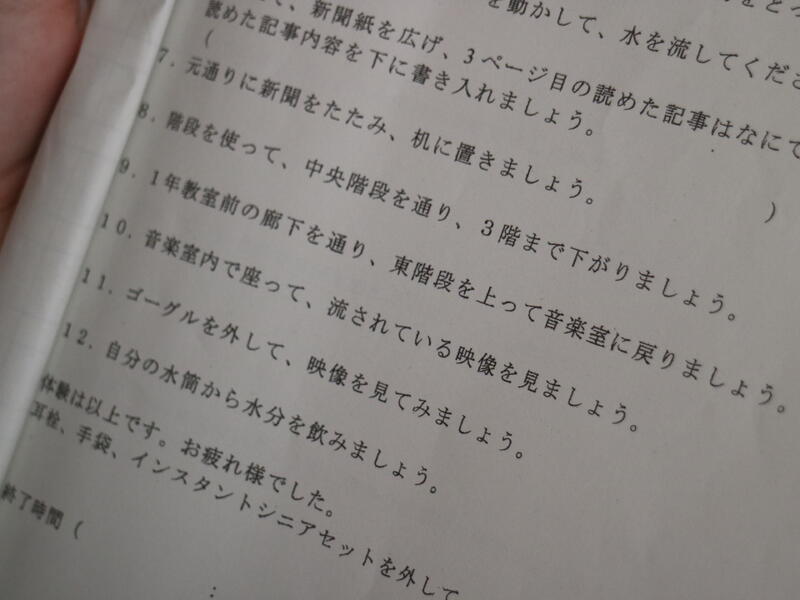 を動かして、水を流してくださ
、新聞紙を広げ、3ページ目の読めた記事はなにで
読めた記事内容を下に書き入れましょう。
(
)
7．元通りに新聞をたたみ、机に置きましょう。
8．階段を使って、中央階段を通り、3階まで下がりましょう。
9．1年教室前の廊下を通り、東階段を上って音楽室に戻りましょう。
10．音楽室内で座って、流されている映像を見ましょう。
11．ゴーグルを外して、映像を見てみましょう。
12．自分の水筒から水分を飲みましょう。
体験は以上です。お疲れ様でした。
耳栓、手袋、インスタントシニアセットを外して
終了時間（
：